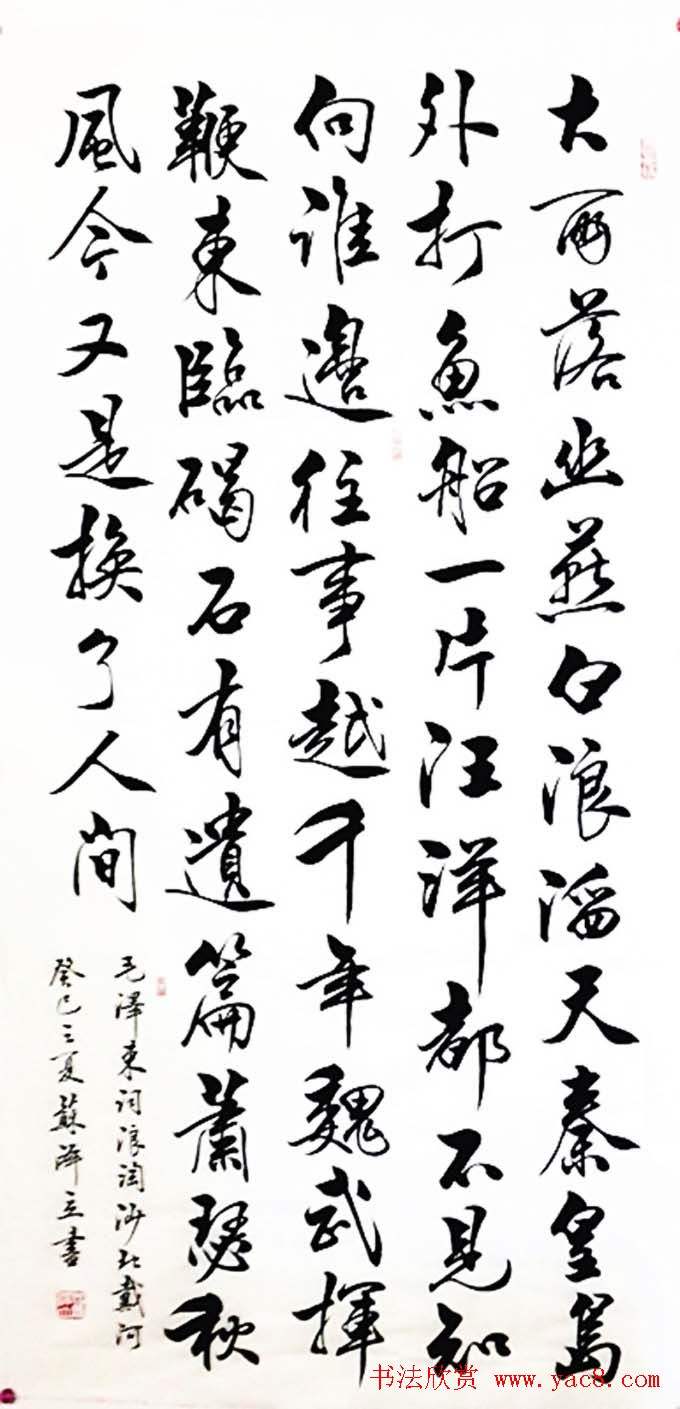 大雨落幽燕白浪滔天秦皇島
外打魚船一片汪洋都不見知
向誰邊往事越千年魏武揮
鞭東臨碣石有遺篇蕭瑟秋
風今又是換了人間
毛澤東词浪淘沙北戴河
癸巳之夏蘇澤立書
书法欣赏 www.yac8.com